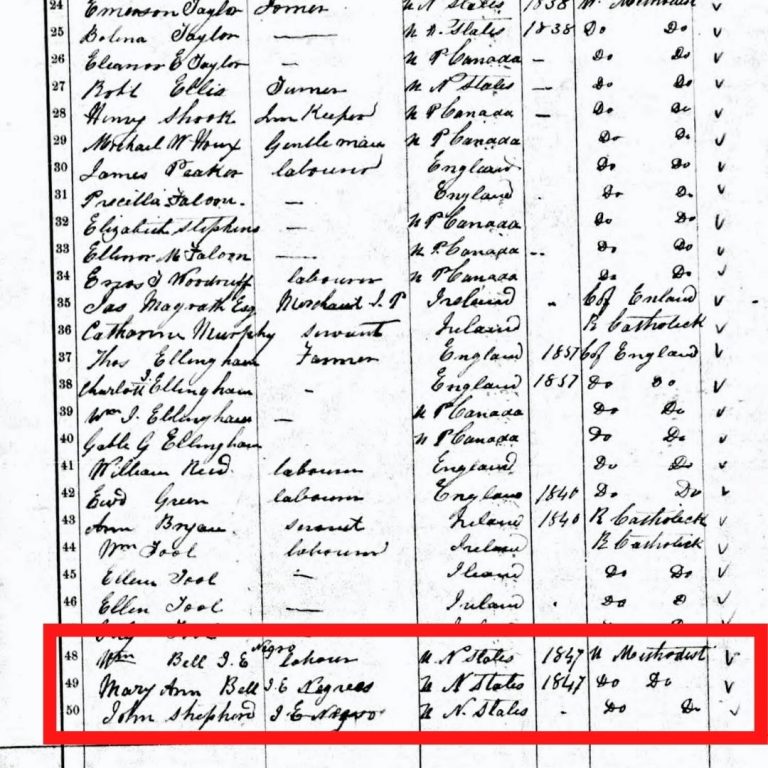 24 Emerson Taylor Farmer U N States 1838 W. Methodist
25 Bolina Taylor — U N. States 1838 Do Do v
26 Eleanor E Taylor — U P Canada — Do Do v
27 Robt Ellis Turner U N States — Do Do v
28 Henry Shook Inn Keeper U P Canada — Do Do v
29 Michael W Houx Gentleman U P Canada Do Do v
30 James Peaker labourer England Do Do v
31 Priscilla Faloon. — England Do Do v
32 Elizabeth Stephins — U P Canada Do Do v
33 Ellinor M Faloon — U P Canada Do Do v
34 Woodruff labourer U P Canada Do Do v
35 Jas Magrath Esq Merchant J. P Ireland C of Enland v
36 Catharine Murphy servant Ireland R Catholick v
37 Thos Ellingham Farmer England 1857 C of England v
38 Charlott J. Ellingham — England 1857 Do Do v
39 Wm J. Ellingham — U P Canada Do Do v
40 G Ellingham U P Canada Do Do v
41 William Reid labourer England Do Do v
42 Ewd Green labourer England 1840 Do Do v
43 Ann Bryan servant Ireland 1840 R Catholick v
44 Wm Tool labourer Ireland R Catholick v
45 Ellen Tool — Ileand Do Do v
46 Ellen Tool — Ireland Do D v
48 Wm Bell I. E Negro labour U N States 1847 U Methodist v
49 Mary Ann Bell I. E Negress U N States 1847 Do Do v
50 John Shepherd I. E Negro U N. States Do D v